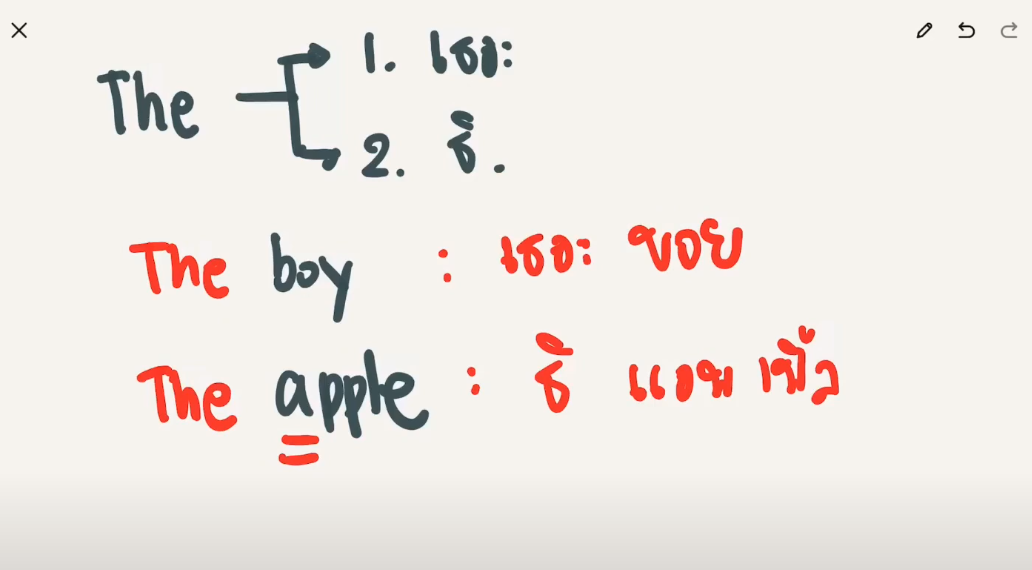 The
1. เธอะ
2. ธิ.
The boy : เธอะ บอย
The apple : ธิ แอพ เพิ้ล